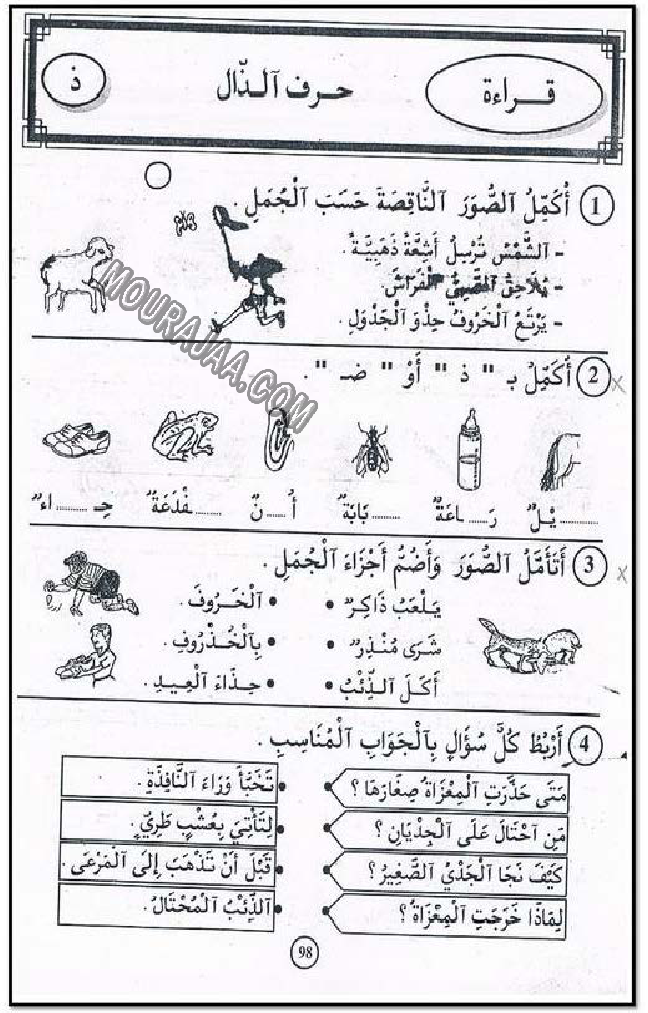 قـراءة
حرف ٱلذّال
ذ
1 أُكَمِّلُ ٱلصُّوَرَ ٱلنَّاقِصَةَ حَسَبَ ٱلْجُمَلِ.
- ٱلشَّمْسُ تُرْسِلُ أَشِعَّةً ذَهَبِيَّةً.
- يُلَاحِقُ ٱلصَّبِيُّ ٱلْفَرَاشَ.
- يَرْتَعُ ٱلْخَرُوفُ حِذْوَ ٱلْجَدْوَلِ.
MOURAJAA.COM
2 أُكَمِّلُ بـ " ذ " أَوْ " ضـ ".
.......يْـلٌ
رَ.......ـاعَةٌ
.......بَابَةٌ
أُ.......نٌ
.......ـفْدَعَةٌ
حِـ.......اءٌ
3 أَتَأَمَّلُ ٱلصُّوَرَ وَأَضُمُّ أَجْزَاءَ ٱلْجُمَلِ.
يَلْعَبُ ذَاكِرٌ • • ٱلْخَرُوفَ.
شَرَى مُنْذِرٌ • • بِٱلْخُذْرُوفِ.
أَكَلَ ٱلذِّئْبُ • • حِذَاءَ ٱلْعِيدِ.
4 أَرْبُطُ كُلَّ سُؤَالٍ بِٱلْجَوَابِ ٱلْمُنَاسِبِ.
مَتَى حَذَّرَتِ ٱلْمِعْزَاةُ صِغَارَهَا ؟ • • تَخَبَّأَ وَرَاءَ ٱلنَّافِذَةِ.
مَنِ ٱحْتَالَ عَلَى ٱلْجِدْيَانِ ؟ • • لِتَأْتِيَ بِعُشْبٍ طَرِيٍّ.
كَيْفَ نَجَا ٱلْجَدْيُ ٱلصَّغِيرُ ؟ • • قَبْلَ أَنْ تَذْهَبَ إِلَى ٱلْمَرْعَى.
لِمَاذَا خَرَجَتِ ٱلْمِعْزَاةُ ؟ • • ٱلذِّئْبُ ٱلْمُحْتَالُ.
98